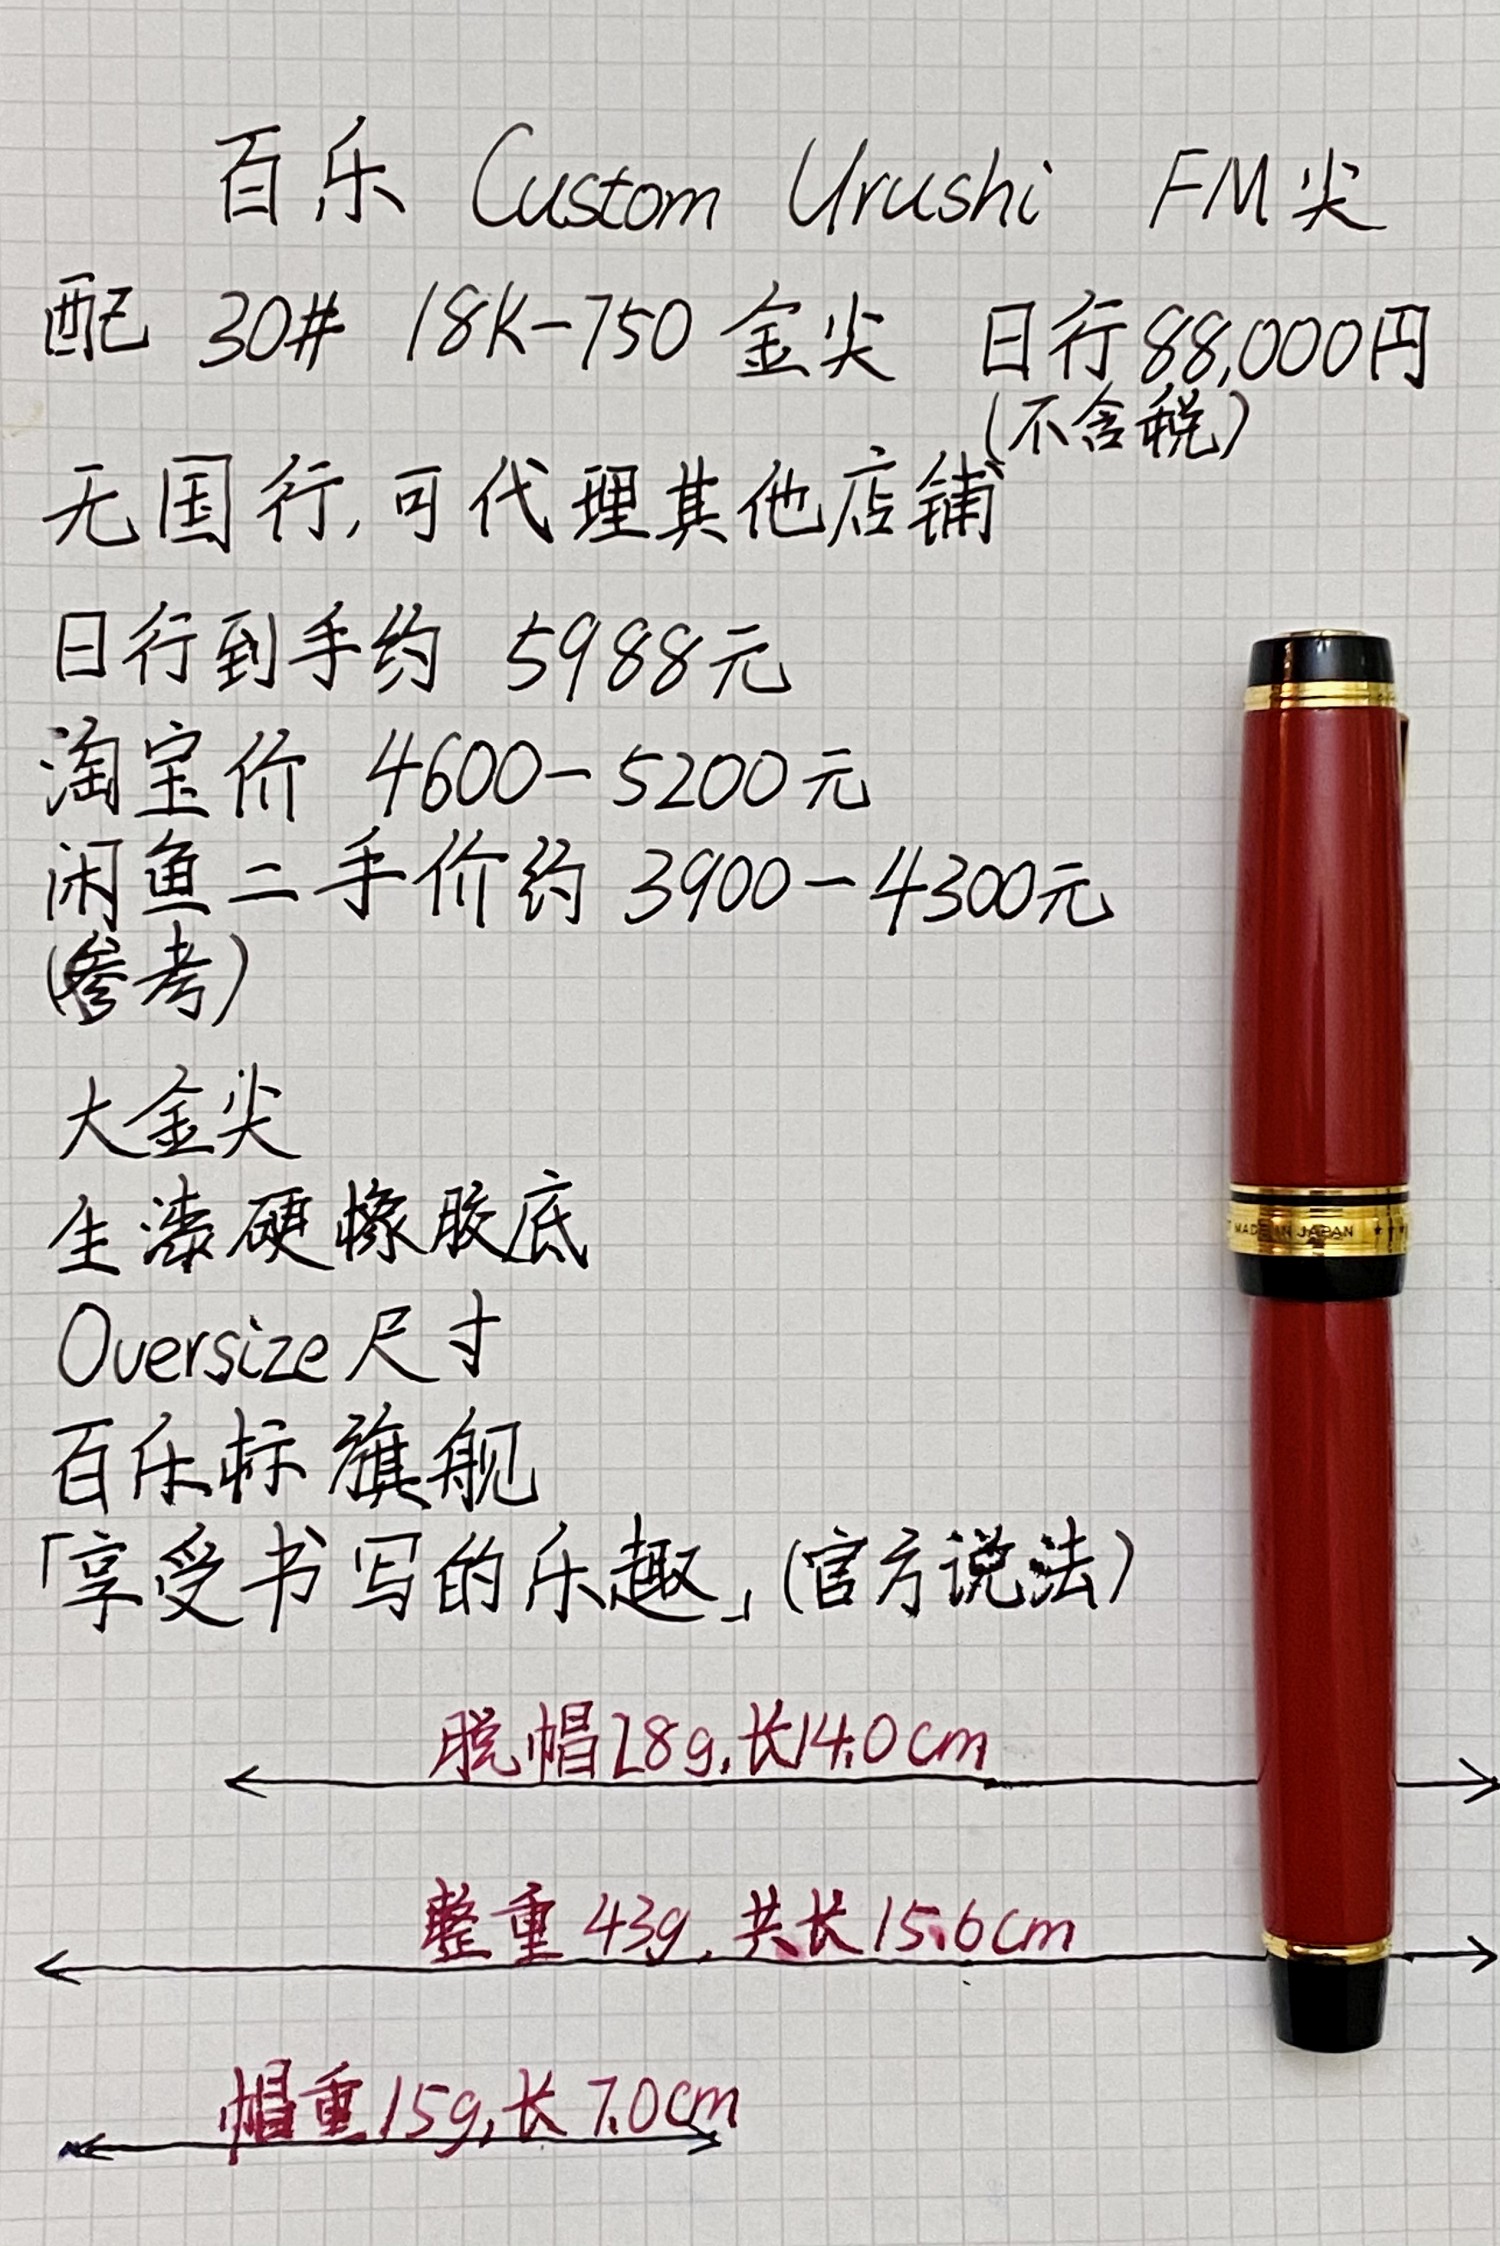 百乐 Custom Urushi FM尖
配 30# 18K-750 金尖 日行88,000円
(不含税)
无国行,可代理其他店铺
日行到手约 5988元
淘宝价 4600-5200元
闲鱼二手价约 3900-4300元
(参考)
大金尖
生漆硬橡胶底
Oversize 尺寸
百乐标 旗舰
「享受书写的乐趣」(官方说法)
脱帽28g,长14.0cm
整重43g,共长15.6cm
帽重15g,长7.0cm
MADE IN JAPAN ★★